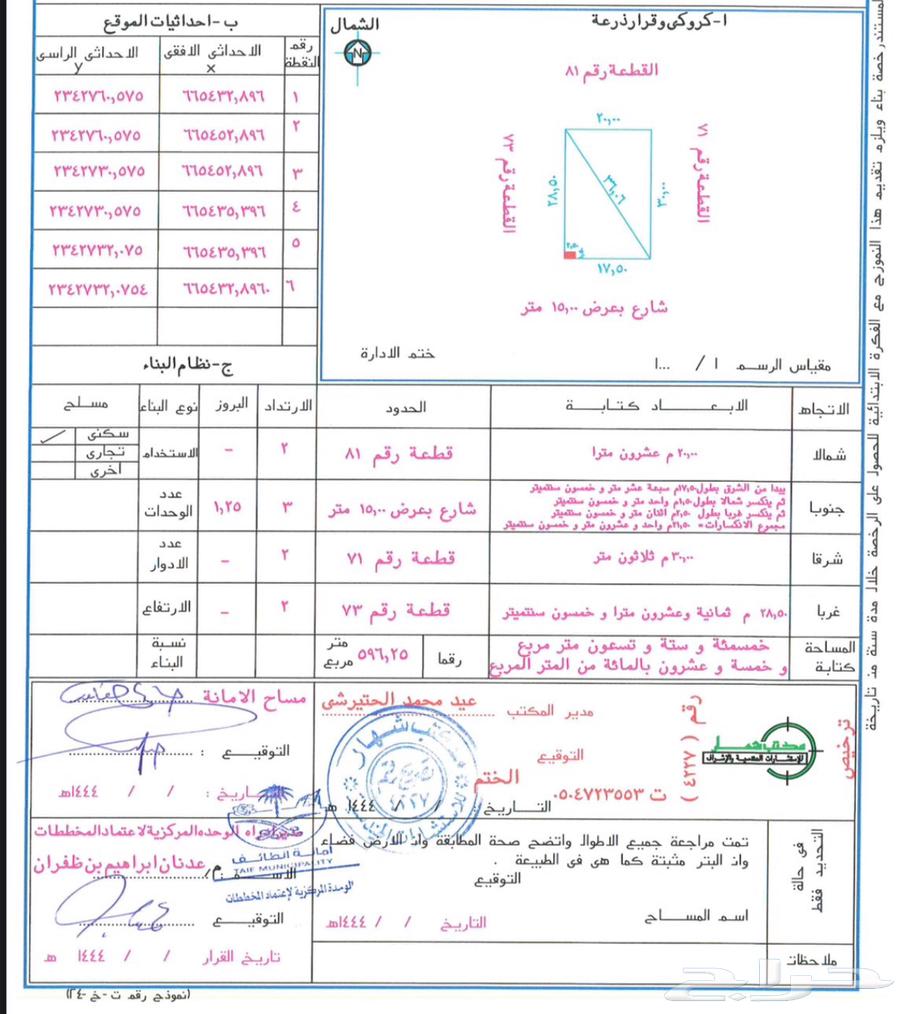 ا-كروكى وقرارذرعة
الشمال
N
القطعة رقم ٨١
٢٠,٠٠
القطعة رقم ٧١
القطعة رقم ٧٣
٢٨,٥٠
٣٦,٠٦
٣٠,٠٠
٢,٥٠
١٧,٥٠
شارع بعرض ١٥,٠٠ متر
ختم الادارة
مقياس الرسم ١ / ...١
ب-احداثيات الموقع
رقم النقطة
الاحداثى الافقى x
الاحداثى الراسى y
١ ٦٦٥٤٣٢,٨٩٦ ٢٣٤٢٧٦٠,٥٧٥
٢ ٦٦٥٤٥٢,٨٩٦ ٢٣٤٢٧٦٠,٥٧٥
٣ ٦٦٥٤٥٢,٨٩٦ ٢٣٤٢٧٣٠,٥٧٥
٤ ٦٦٥٤٣٥,٣٩٦ ٢٣٤٢٧٣٠,٥٧٥
٥ ٦٦٥٤٣٥,٣٩٦ ٢٣٤٢٧٣٢,٠٧٥
٦ ٦٦٥٤٣٢,٨٩٦٠ ٢٣٤٢٧٣٢,٠٧٥٤
ج-نظام البناء
الاتجاه الابعاد كتابة الحدود الارتداد البروز نوع البناء مسلح
شمالا ٢٠,٠٠م عشرون مترا قطعة رقم ٨١ ٢ - الاستخدام
سكنى ✓
تجارى
اخرى
جنوبا
يبدا من الشرق بطول ١٧,٥٠م سبعة عشر متر و خمسون سنتميتر
ثم ينكسر شمالا بطول ١,٥٠م واحد متر و خمسون سنتميتر
ثم ينكسر غربا بطول ٢,٥٠م اثنان متر و خمسون سنتميتر
مجموع الانكسارات= ٢١,٥٠م واحد و عشرون متر و خمسون سنتميتر
شارع بعرض ١٥,٠٠ متر ٣ ١,٢٥ عدد الوحدات
شرقا ٣٠,٠٠م ثلاثون متر قطعة رقم ٧١ ٢ - عدد الادوار
غربا ٢٨,٥٠ م ثمانية وعشرون مترا و خمسون سنتميتر قطعة رقم ٧٣ ٢ - الارتفاع
المساحة كتابة
خمسمئة و ستة و تسعون متر مربع
و خمسة و عشرون بالمائة من المتر المربع
رقما ٥٩٦,٢٥ متر مربع نسبة البناء
ترخيص
رقم ( ٤٢٢٧ )
ت ٠٥٠٤٧٢٣٥٥٣
مدير المكتب عيد محمد الحتيرشى
التوقيع
الختم
التاريخ : / / ١٤٤٤ هـ
مساح الامانة
التوقيع :
تاريخ : / / ١٤٤٤هـ
الوحده المركزية لاعتماد المخططات
م/عدنان ابراهيم بن ظفران
التوقيع
تاريخ القرار / / ١٤٤٤ هـ
أمانة الطائف
TAIF MUNICIPALITY
الوحدة المركزية لإعتماد المخططات
التحديد فى حالة فقط
تمت مراجعة جميع الاطوال واتضح صحة المطابقة وان الارض فضاء
وان البتر مثبتة كما هى فى الطبيعة .
التوقيع
اسم المساح التاريخ / / ١٤٤٤هـ
ملاحظات
(نموذج رقم ت-خ-٢٤)
حراج